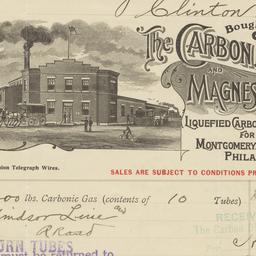 Clinton
Boug
The Carbon
AND
Magnes
Liquefied Carbo
FOR
Montgomery
Phila
nion Telegraph Wires.
SALES ARE SUBJECT TO CONDITIONS PR
00 lbs. Carbonic Gas (contents of 10 Tubes)
indsor Line
R Road
RECEI
The Carbon D
URN TUBES
must be returned to